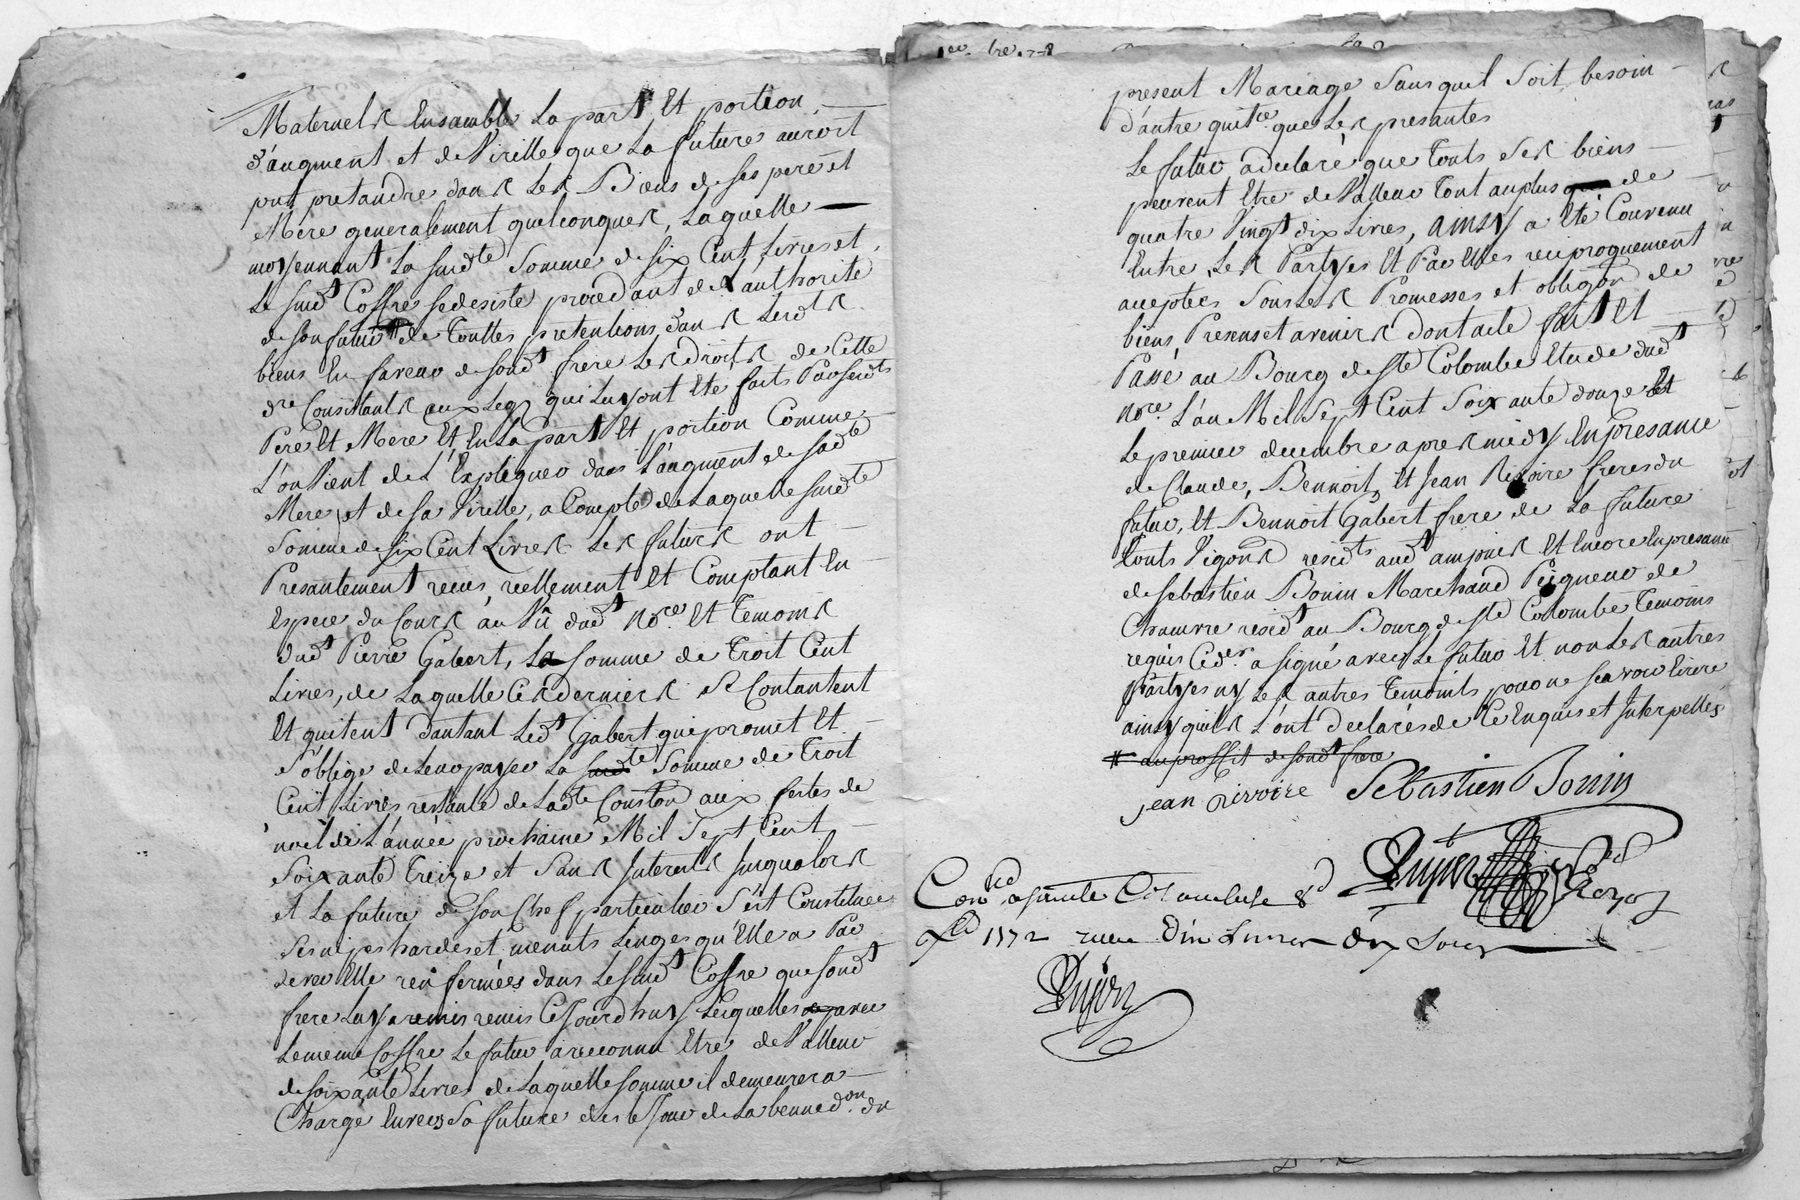 Maternels Ensamble La part Et portion
d'augment et de Virille que La future auroit
put pretandre dans Les Biens de ses pere et
Mere generalement quelconques, Laquelle
moyennant La susdte Somme de six Cent Livres et
Le susdt Coffre se desiste procedant de L'authorité
de son futur # de Touttes pretentions dans Lesdts
biens En faveur de sondt frere Les droits de Cette
dre Consistants aux Legs qui Luy ont Eté faits Par sesdts
Pere Et Mere Et En La part Et portion Comme
L'on Vient de L'Expliquer dans L'augment de sadte
Mere, et de sa Virille, a Compte de Laquelle susdte
Somme de six Cent Livres Les futurs ont
Presantement recus, reellement Et Comptant En
Espece du Cours au Vû dudt Nore. Et Temoins
dudt Pierre Gabert, La Somme de Troit Cent
Livres, de Laquelle Ces derniers Se Contantent
Et quitent dautant Ledt Gabert qui promet Et
s'oblige de Leur payer La susdte Somme de Troit
Cent Livres restante de Ladte Conston aux fertes de
noel de L'année prochaine Mil Sept Cent
Soixante Treize et Sans Interests jusqualors
et La future de son Chef particulier S'est Constituée
Ses nipes hardes et menuts Linges qu'Elle a Par
devers Elle renfermées dans Le susdt Coffre que sondt
frere Luy a remis remis Cejourdhuy Lesquelles avec
Le meme Coffre Le futur a reconnu Etre de Valleur
de soixante Livres de Laquelle Somme il demeurera
Chargé Envers Sa future des le Jour de La bennedon. du
present Mariage Sans quil Soit besoin
d'autre quitce que Les presantes
Le futur a declaré que Touts Ses biens
peuvent Etre de Valleur Tout au plus de
quatre Vingt dix Livres, Ainsy a Eté Convenu
Entre Les Partyes Et Par Elles reciproquement
acceptés Sous Les Promesses et obligon de
biens Presens et avenirs dont acte fait Et
Passé au Bourg de Ste Colombe Etude dudt
Nore. L'an Mil Sept Cent Soixante douze Et
Le premier decembre apres midy En presance
de Claude, Bennoit, Et Jean Rivoire freres du
futur, Et Bennoit Gabert frere de La future
Touts Vigons residts audt ampuis Et Encore En presance
de Sebastien Bonin Marchand Peigneur de
Chanvre residt au Bourg de Ste Colombe Temoins
requis Ceder. a signé avec Le futur Et non Les autres
partyes ny Les autres Temoints pour ne scavoir Ecrire
ainsy quils L'ont declarés de Ce Enquis et Interpellés
# au proffit de sondt frere
jean rivoire Sebastien Bonin